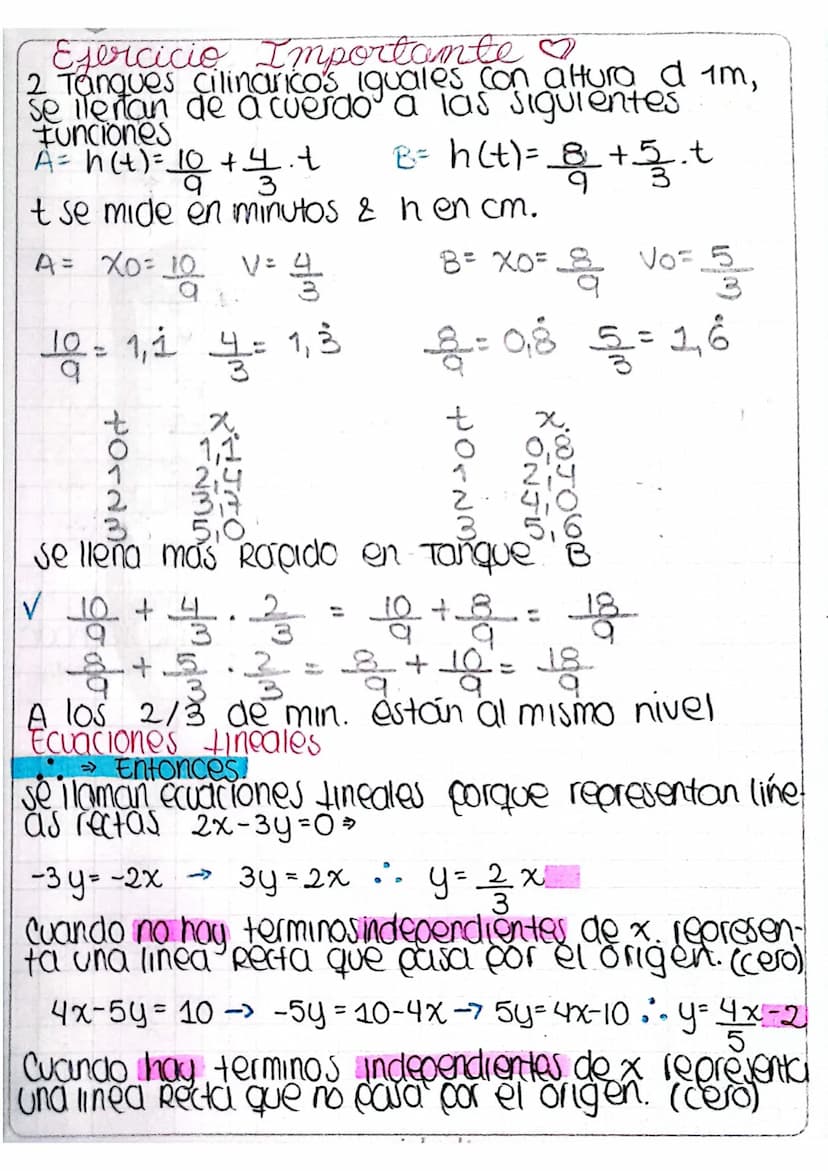 Ejercicio Importante ♡
2 Tanques cilindricos iguales con altura d 1m,
se llenan de acuerdo a las siguientes
funciones
A= h(t)= 10/9 + 4/3 . t B= h(t)= 8/9 + 5/3 . t
t se mide en minutos & h en cm.
A= X0= 10/9 V= 4/3 B= X0= 8/9 V0= 5/3
10/9 = 1,1̇ 4/3 = 1,3̇ 8/9 = 0,8̇ 5/3 = 1,6̇
t x t x.
0 1,1 0 0,8
1 2,4 1 2,4
2 3,7 2 4,0
3 5,0 3 5,6
se llena más Rápido en Tanque B
√ 10/9 + 4/3 . 2/3 = 10/9 + 8/9 = 18/9
8/9 + 5/3 . 2/3 = 8/9 + 10/9 = 18/9
A los 2/3 de min. están al mismo nivel
Ecuaciones lineales
∴ ⇒ Entonces.
se llaman ecuaciones lineales porque representan líne-
as rectas 2x-3y=0 ⇒
-3y= -2x → 3y=2x ∴ y= 2/3 x
Cuando no hay terminos independientes de x. represen-
ta una linea Recta que pasa por el origen. (cero)
4x-5y= 10 → -5y=10-4x → 5y=4x-10 ∴ y= 4x/5 -2
Cuando hay terminos independientes de x representa
una linea Recta que no pasa por el origen. (cero)